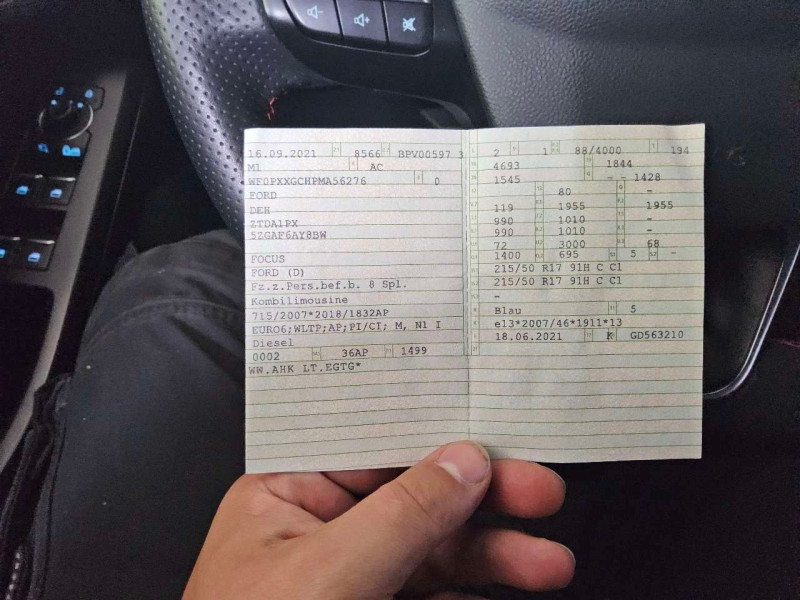 16.09.2021 8566 BPV00597 3
M1 AC
WF0PXXGCHPMA56276 0
FORD
DEH
ZTDA1PX
5ZGAF6AY8BW
FOCUS
FORD (D)
Fz.z.Pers.bef.b. 8 Spl.
Kombilimousine
715/2007*2018/1832AP
EURO6;WLTP;AP;PI/CI; M, N1 I
Diesel
0002 36AP 1499
WW.AHK LT.EGTG*
2 1 88/4000 194
4693 1844
1545 - - 1428
80 -
119 1955 1955
990 1010 -
990 1010 -
72 3000 68
1400 695 5 -
215/50 R17 91H C C1
215/50 R17 91H C C1
-
Blau 5
e13*2007/46*1911*13
18.06.2021 K GD563210